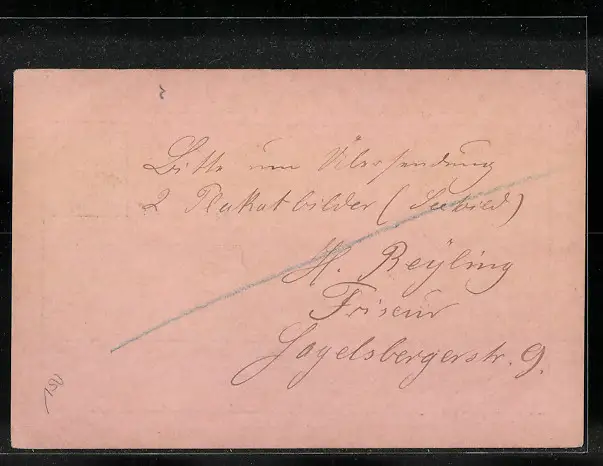 Bitte um Übersendung
2 Plakatbilder (Seebild)
H. Reyling
Friseur
Hagelsbergerstr. 9.